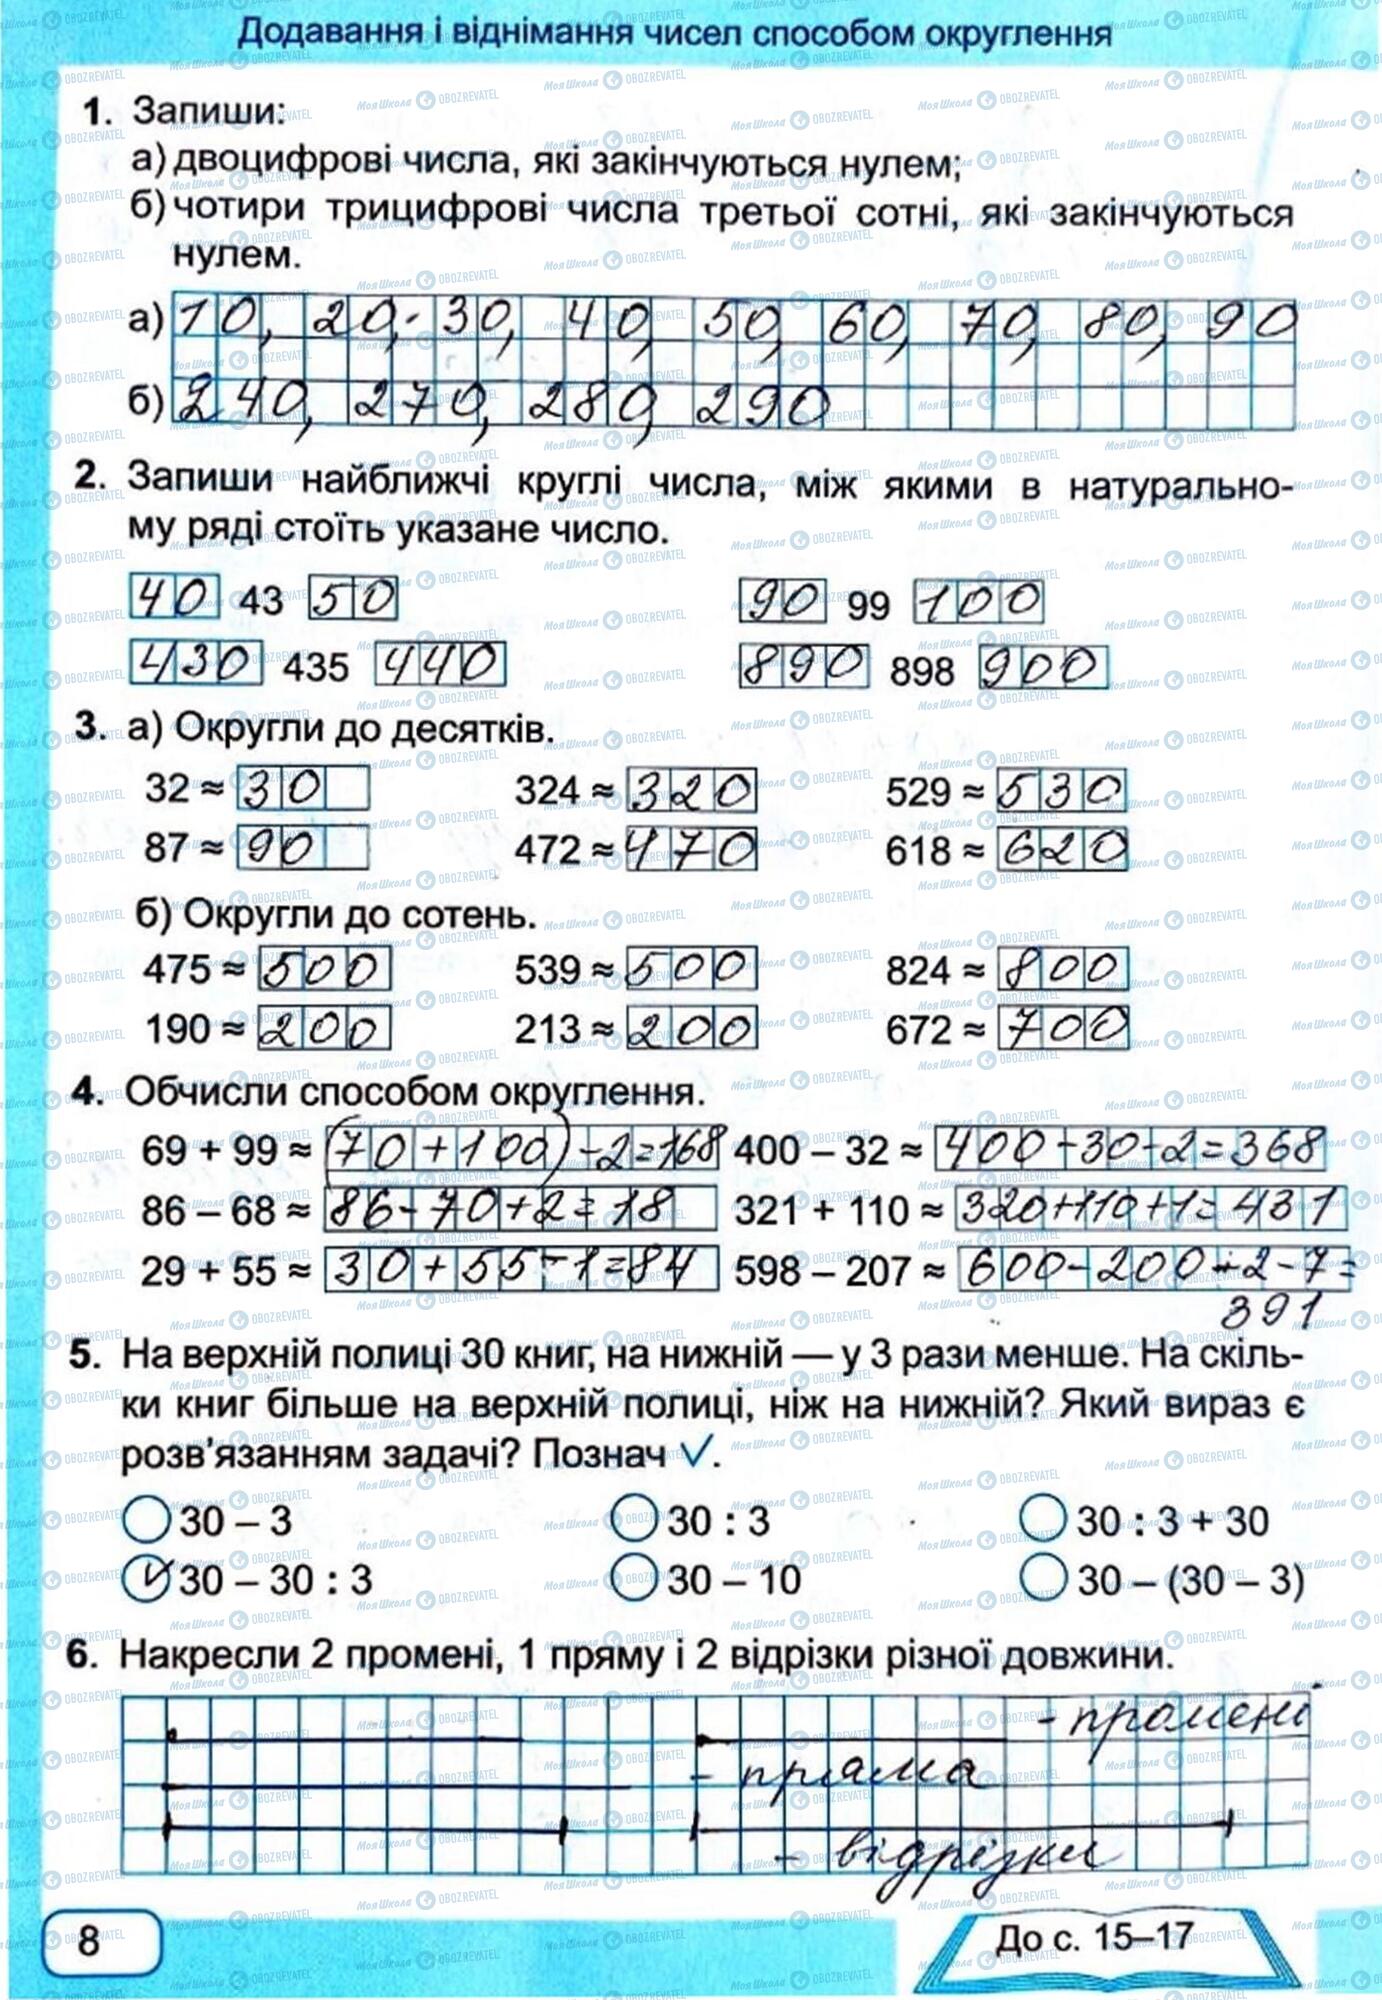 Додавання і віднімання чисел способом округлення
1. Запиши:
а) двоцифрові числа, які закінчуються нулем;
б) чотири трицифрові числа третьої сотні, які закінчуються
нулем.
а) 10, 20, 30, 40, 50, 60, 70, 80, 90
б) 240, 270, 280, 290
2. Запиши найближчі круглі числа, між якими в натурально-
му ряді стоїть указане число.
40 43 50 90 99 100
430 435 440 890 898 900
3. а) Округли до десятків.
32 ≈ 30 324 ≈ 320 529 ≈ 530
87 ≈ 90 472 ≈ 470 618 ≈ 620
б) Округли до сотень.
475 ≈ 500 539 ≈ 500 824 ≈ 800
190 ≈ 200 213 ≈ 200 672 ≈ 700
4. Обчисли способом округлення.
69 + 99 ≈ (70+100)-2=168 400 – 32 ≈ 400-30-2=368
86 – 68 ≈ 86-70+2=18 321 + 110 ≈ 320+110+1=431
29 + 55 ≈ 30+55-1=84 598 – 207 ≈ 600-200-2-7=
391
5. На верхній полиці 30 книг, на нижній — у 3 рази менше. На скіль-
ки книг більше на верхній полиці, ніж на нижній? Який вираз є
розв'язанням задачі? Познач √.
30 – 3 30 : 3 30 : 3 + 30
√ 30 – 30 : 3 30 – 10 30 – (30 – 3)
6. Накресли 2 промені, 1 пряму і 2 відрізки різної довжини.
- промені
- пряма
- відрізки
8 До с. 15–17